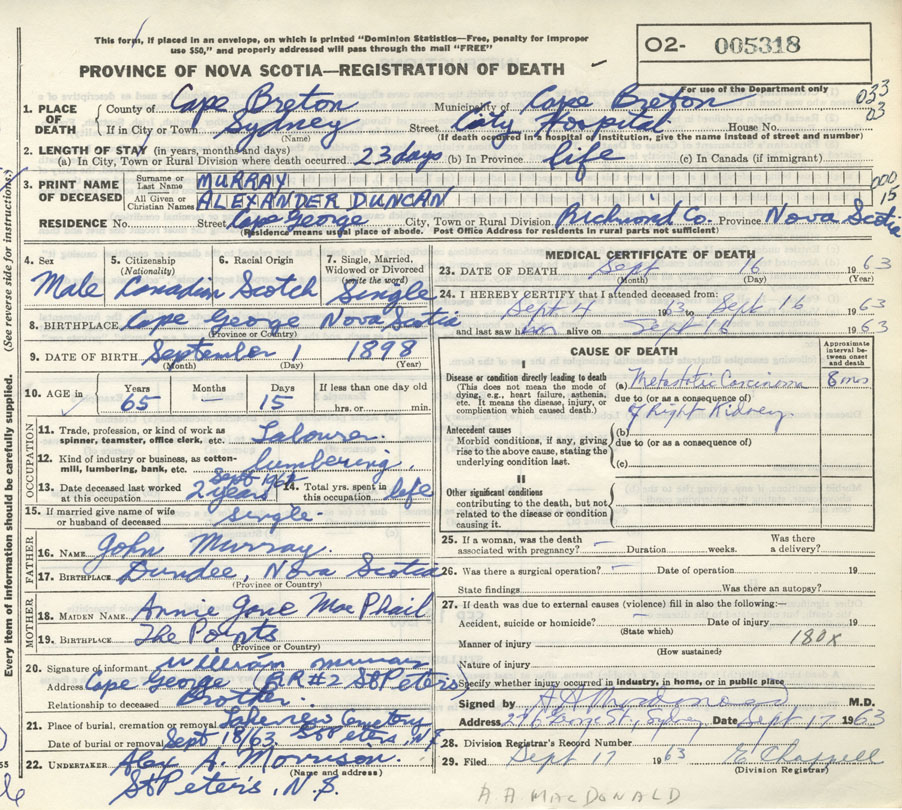 This form, if placed in an envelope, on which is printed "Dominion Statistics—Free, penalty for improper
use $50," and properly addressed will pass through the mail "FREE"
O2- 005318
For use of the Department only
PROVINCE OF NOVA SCOTIA—REGISTRATION OF DEATH
033
03
1. PLACE OF DEATH { County of Cape Breton Municipality of Cape Breton
If in City or Town Sydney Street City Hospital House No.
(Name) (If death occurred in a hospital of institution, give the name instead of street and number)
2. LENGTH OF STAY (in years, months and days)
(a) In City, Town or Rural Division where death occurred 23 days (b) In Province life (c) In Canada (if immigrant)
3. PRINT NAME OF DECEASED { Surname or Last Name MURRAY 000
All Given or Christian Names ALEXANDER DUNCAN 15
RESIDENCE No. Street Cape George City, Town or Rural Division Richmond Co. Province Nova Scotia
(Residence means usual place of abode. Post Office Address for residents in rural parts not sufficient)
4. Sex Male
5. Citizenship (Nationality) Canadian
6. Racial Origin Scotch
7. Single, Married, Widowed or Divorced (write the word) Single
8. BIRTHPLACE Cape George Nova Scotia
(Province or Country)
9. DATE OF BIRTH September 1 1898
(Month) (Day) (Year)
10. AGE in Years 65 Months — Days 15 If less than one day old hrs. or min.
OCCUPATION
11. Trade, profession, or kind of work as spinner, teamster, office clerk, etc. Labourer.
12. Kind of industry or business, as cotton-mill, lumbering, bank, etc. lumbering.
13. Date deceased last worked at this occupation 2 years
14. Total yrs. spent in this occupation life
15. If married give name of wife or husband of deceased single.
FATHER
16. NAME John Murray.
17. BIRTHPLACE Dundee, Nova Scotia
(Province or Country)
MOTHER
18. MAIDEN NAME Annie Jane MacPhail
19. BIRTHPLACE The Points
(Province or Country)
20. Signature of informant William Murray
Address Cape George (R.R #2 St Peters)
Relationship to deceased Brother
21. Place of burial, cremation or removal Lakeview Cemetery
Date of burial or removal Sept 18/63 St Peters, N.S
22. UNDERTAKER Alex A. Morrison.
(Name and address)
St Peter's, N.S.
MEDICAL CERTIFICATE OF DEATH
23. DATE OF DEATH Sept 16 1963
(Month) (Day) (Year)
24. I HEREBY CERTIFY that I attended deceased from:
Sept 4 1963 to Sept 16 1963
and last saw him alive on Sept 16 1963
CAUSE OF DEATH
Approximate interval between onset and death
I
Disease or condition directly leading to death
(This does not mean the mode of dying, e.g., heart failure, asthenia, etc. It means the disease, injury, or complication which caused death.)
(a) Metastatic Carcinoma 8 mos
due to (or as a consequence of)
of Right Kidney.
Antecedent causes
Morbid conditions, if any, giving rise to the above cause, stating the underlying condition last.
(b)
due to (or as a consequence of)
(c)
II
Other significant conditions
contributing to the death, but not related to the disease or condition causing it.
25. If a woman, was the death associated with pregnancy? — Duration weeks. Was there a delivery?
26. Was there a surgical operation? — Date of operation 19
State findings Was there an autopsy?
27. If death was due to external causes (violence) fill in also the following:—
Accident, suicide or homicide? — Date of injury 19
(State which)
Manner of injury 180X
(How sustained)
Nature of injury
Specify whether injury occurred in industry, in home, or in public place
Signed by A A MacDonald M.D.
Address 246 George St, Sydney Date Sept 17 1963
28. Division Registrar's Record Number
29. Filed Sept 17 1963 Chappell
(Division Registrar)
A A MACDONALD
Every item of information should be carefully supplied. (See reverse side for instructions.)